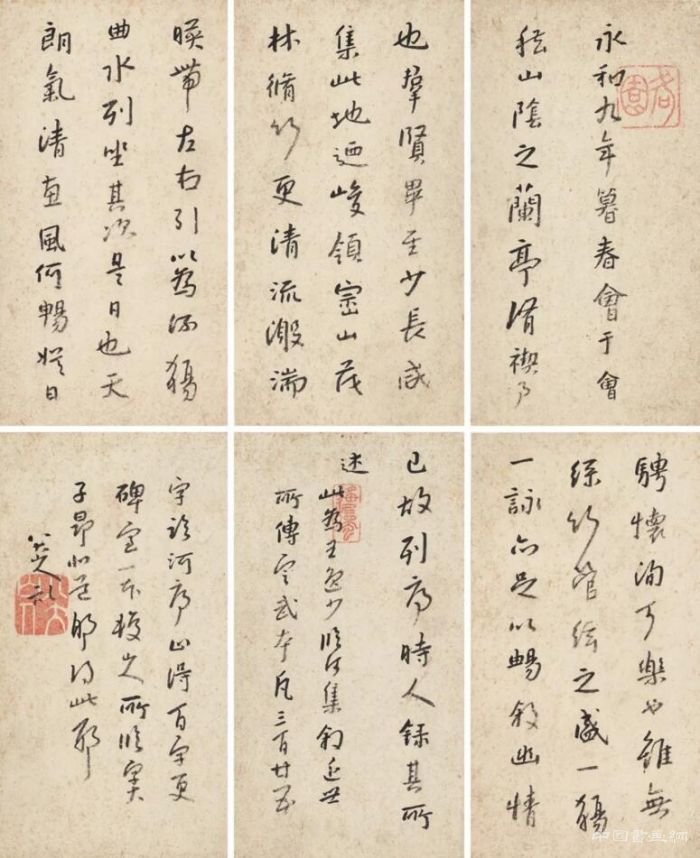 永和九年暮春會于會
嵇山陰之蘭亭脩禊事
也羣賢畢至少長咸
集此地迺峻領崇山茂
林脩竹更清流激湍
暎帶左右引以為流觴
曲水列坐其次是日也天
朗氣清惠風和暢娛目
騁懷洵可樂也雖無
絲竹管絃之盛一觴
一詠亦足以暢敘幽情
已故列序時人錄其所
述
此為王逸少臨河集敘近世
所傳定武本凡三百廿五
字臨河序止得百字更
碑定一本
子昂得此耶
中國書畫網